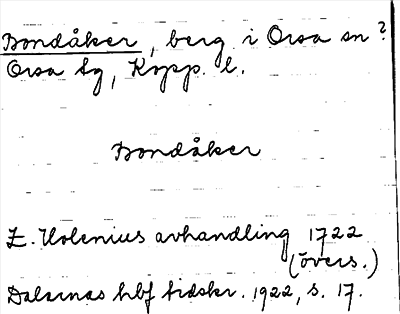 Bondåker, berg i Orsa sn?
Orsa tg, Kopp. l.
Bondåker
E. Holenius avhandling 1722
(övers.)
Dalarnas hbf tidskr. 1922, s. 17.